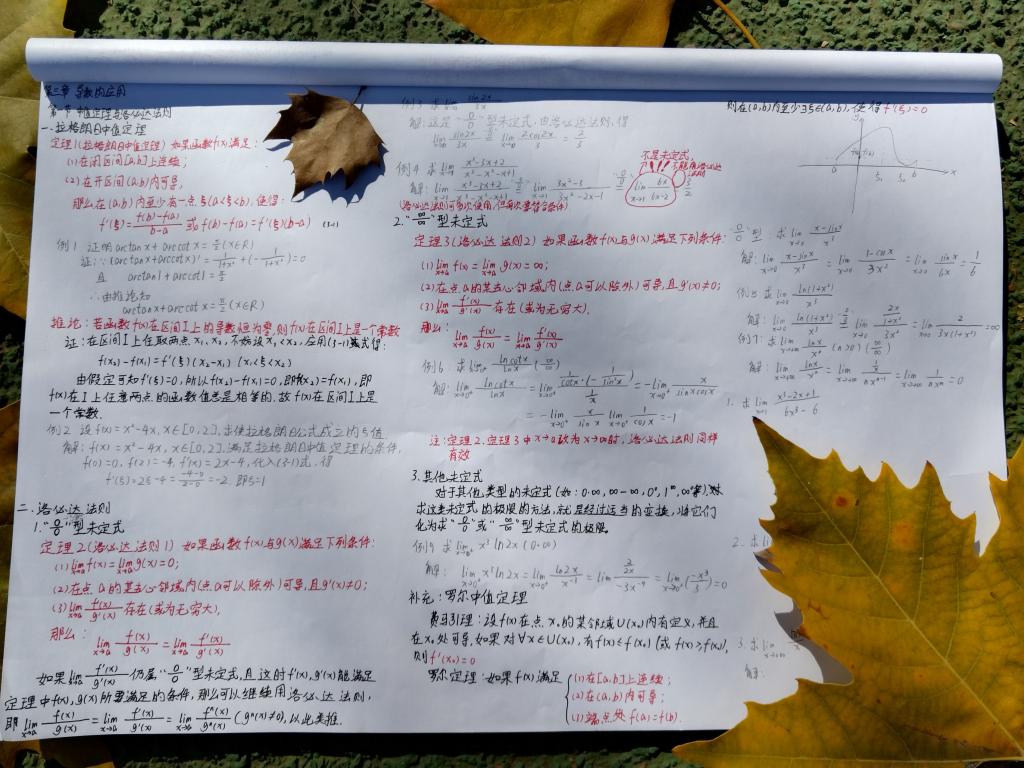 第三章 导数的应用
第一节 中值定理与洛必达法则
一.拉格朗日中值定理
定理1(拉格朗日中值定理) 如果函数f(x)满足:
(1)在闭区间[a,b]上连续;
(2)在开区间(a,b)内可导,
那么在(a,b)内至少有一点ξ(a<ξ<b),使得:
f'(ξ)=\frac{f(b)-f(a)}{b-a} 或 f(b)-f(a)=f'(ξ)(b-a) (3-1)
例1 证明arctanx+arccotx=\frac{π}{2}(x∈R)
证:∵(arctanx+arccotx)'=\frac{1}{1+x²}+(-\frac{1}{1+x²})=0
且 arctan1+arccot1=\frac{π}{2}
∴由推论知
arctanx+arccotx=\frac{π}{2}(x∈R)
推论:若函数f(x)在区间I上的导数恒为零,则f(x)在区间I上是一个常数
证:在区间I上任取两点x₁、x₂,不妨设x₁<x₂,应用(3-1)式得:
f(x₂)-f(x₁)=f'(ξ)(x₂-x₁) (x₁<ξ<x₂)
由假定可知f'(ξ)=0,所以f(x₂)-f(x₁)=0,即f(x₂)=f(x₁),即
f(x)在I上任意两点的函数值总是相等的.故f(x)在区间I上是
一个常数.
例2 设f(x)=x²-4x,x∈[0,2],求使拉格朗日公式成立的ξ值
解:f(x)=x²-4x,x∈[0,2]满足拉格朗日中值定理的条件,
f(0)=0,f(2)=-4,f'(x)=2x-4,代入(3-1)式,得
f'(ξ)=2ξ-4=\frac{-4-0}{2-0}=-2.即ξ=1
二.洛必达法则
1."\frac{0}{0}"型未定式
定理2(洛必达法则1) 如果函数f(x)与g(x)满足下列条件:
(1)\lim_{x→a}f(x)=\lim_{x→a}g(x)=0;
(2)在点a的某去心邻域内(点a可以除外)可导,且g'(x)≠0;
(3)\lim_{x→a}\frac{f'(x)}{g'(x)}存在(或为无穷大),
那么: \lim_{x→a}\frac{f(x)}{g(x)}=\lim_{x→a}\frac{f'(x)}{g'(x)}
如果\lim_{x→a}\frac{f'(x)}{g'(x)}仍属"\frac{0}{0}"型未定式,且这时f'(x),g'(x)能满足
定理中f(x),g(x)所要满足的条件,那么可以继续用洛必达法则,
即\lim_{x→a}\frac{f(x)}{g(x)}=\lim_{x→a}\frac{f'(x)}{g'(x)}=\lim_{x→a}\frac{f''(x)}{g''(x)}(g''(x)≠0),以此类推.
例3 求\lim\frac{sin2x}{3x}
解:这是"\frac{0}{0}"型未定式,由洛必达法则,得
\lim\frac{sin2x}{3x}=\lim\frac{2cos2x}{3}=\frac{2}{3}
例4 求\lim_{x→1}\frac{x³-3x+2}{x³-x²-x+1}
解:\lim_{x→1}\frac{x³-3x+2}{x³-x²-x+1}=\lim_{x→1}\frac{3x²-3}{3x²-2x-1}=\lim_{x→1}\frac{6x}{6x-2}=\frac{3}{2}
不是未定式,
不能用洛必达
法则
(洛必达法则可多次使用,但每次要符合条件)
2."\frac{∞}{∞}"型未定式
定理3(洛必达法则2) 如果函数f(x)与g(x)满足下列条件:
(1)\lim_{x→a}f(x)=\lim_{x→a}g(x)=∞;
(2)在点a的某去心邻域内(点a可以除外)可导,且g'(x)≠0;
(3)\lim_{x→a}\frac{f'(x)}{g'(x)}存在(或为无穷大).
那么: \lim_{x→a}\frac{f(x)}{g(x)}=\lim_{x→a}\frac{f'(x)}{g'(x)}
例6 求\lim_{x→0⁺}\frac{lncotx}{lnx}(\frac{∞}{∞})
解:\lim_{x→0⁺}\frac{lncotx}{lnx}=\lim_{x→0⁺}\frac{\frac{1}{cotx}·(-\frac{1}{sin²x})}{\frac{1}{x}}=-\lim_{x→0⁺}\frac{x}{sinxcosx}
=-\lim_{x→0⁺}\frac{x}{sinx}\lim_{x→0⁺}\frac{1}{cosx}=-1
注:定理2.定理3中x→a改为x→∞时,洛必达法则同样
有效
3.其他未定式
对于其他类型的未定式(如:0·∞,∞-∞,0⁰,1^∞,∞⁰等),
求这类未定式的极限的方法,就是经过适当的变换,将它们
化为求"\frac{0}{0}"或"\frac{∞}{∞}"型未定式的极限.
例9 求\lim_{x→0⁺}x³ln2x(0·∞)
解: \lim_{x→0⁺}x³ln2x=\lim_{x→0⁺}\frac{ln2x}{x^{-3}}=\lim\frac{\frac{2}{2x}}{-3x^{-4}}=\lim_{x→0⁺}(-\frac{x³}{3})=0
补充:罗尔中值定理
费马引理:设f(x)在点x₀的某邻域U(x₀)内有定义,并且
在x₀处可导,如果对∀x∈U(x₀),有f(x)≤f(x₀)(或f(x)≥f(x₀)),
则f'(x₀)=0
罗尔定理:如果f(x)满足
(1)在[a,b]上连续;
(2)在(a,b)内可导;
(3)端点处f(a)=f(b).
则在(a,b)内至少∃ξ∈(a,b),使得f'(ξ)=0
y
a
b x
"\frac{0}{0}"型 求\lim_{x→0}\frac{x-sinx}{x³}
解:\lim_{x→0}\frac{x-sinx}{x³}=\lim_{x→0}\frac{1-cosx}{3x²}=\lim_{x→0}\frac{sinx}{6x}=\frac{1}{6}
例5 求\lim_{x→0}\frac{ln(1+x²)}{x³}
解:\lim_{x→0}\frac{ln(1+x²)}{x³}=\lim_{x→0}\frac{\frac{2x}{1+x²}}{3x²}=\lim_{x→0}\frac{2}{3x(1+x²)}=∞
例7:求\lim_{x→+∞}\frac{lnx}{xⁿ}(n>0)(\frac{∞}{∞})
解:\lim_{x→+∞}\frac{lnx}{xⁿ}=\lim_{x→+∞}\frac{\frac{1}{x}}{nx^{n-1}}=\lim_{x→+∞}\frac{1}{nxⁿ}=0
1.求\lim_{x→1}\frac{x³-2x+1}{6x³-6}
2.求
3.求\lim
解: